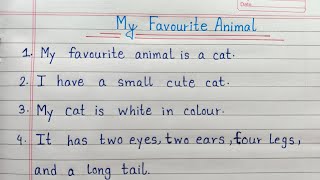 Date
My Favourite Animal
1. My favourite animal is a cat.
2. I have a small cute cat.
3. My cat is white in colour.
4. It has two eyes, two ears, four legs,
and a long tail.